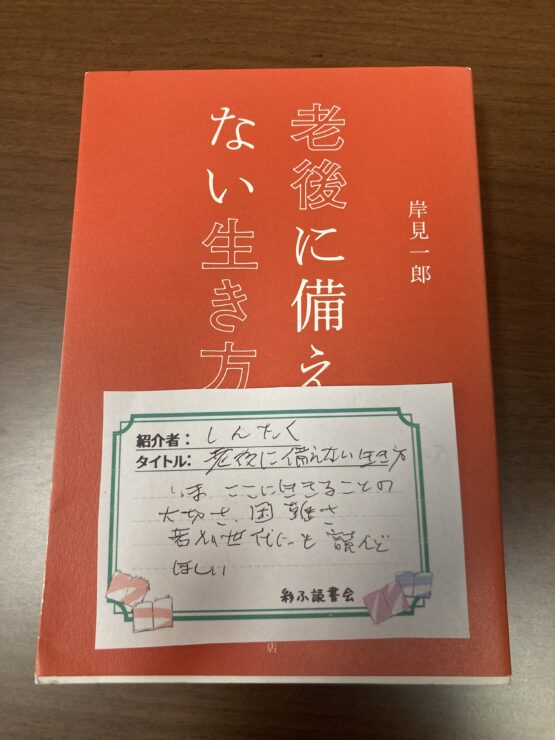 岸見一郎
老後に備え
ない生き方
紹介者： しんたく
タイトル： 老後に備えない生き方
いま、ここに生きることの
大切さ、困難さ
若い世代にも読んで
ほしい
彩ふ読書会
店